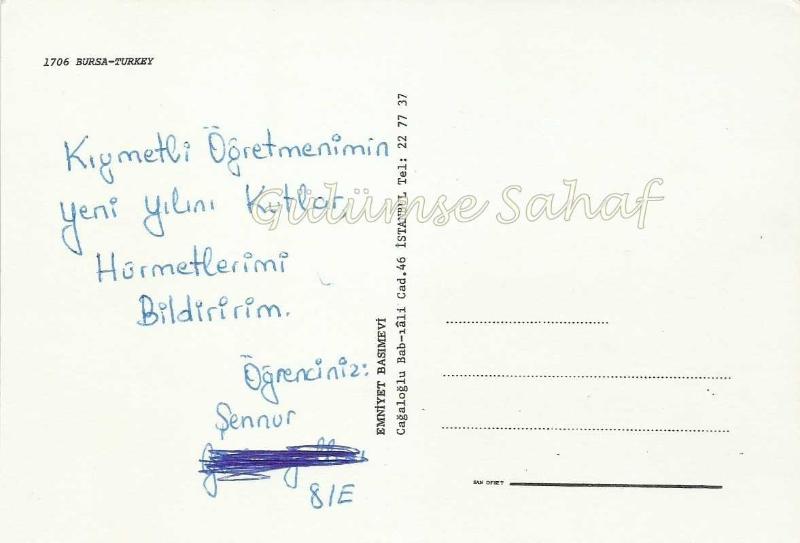 1706 BURSA-TURKEY
Kıymetli Öğretmenimin
yeni yılını Kutlar,
Hürmetlerimi
Bildiririm.
Öğrenciniz:
Şennur
8/E
EMNİYET BASIMEVİ
Cağaloğlu Bab-ıâli Cad.46 İSTANBUL Tel: 22 77 37
Güdümse Sahaf
SAN OFSET